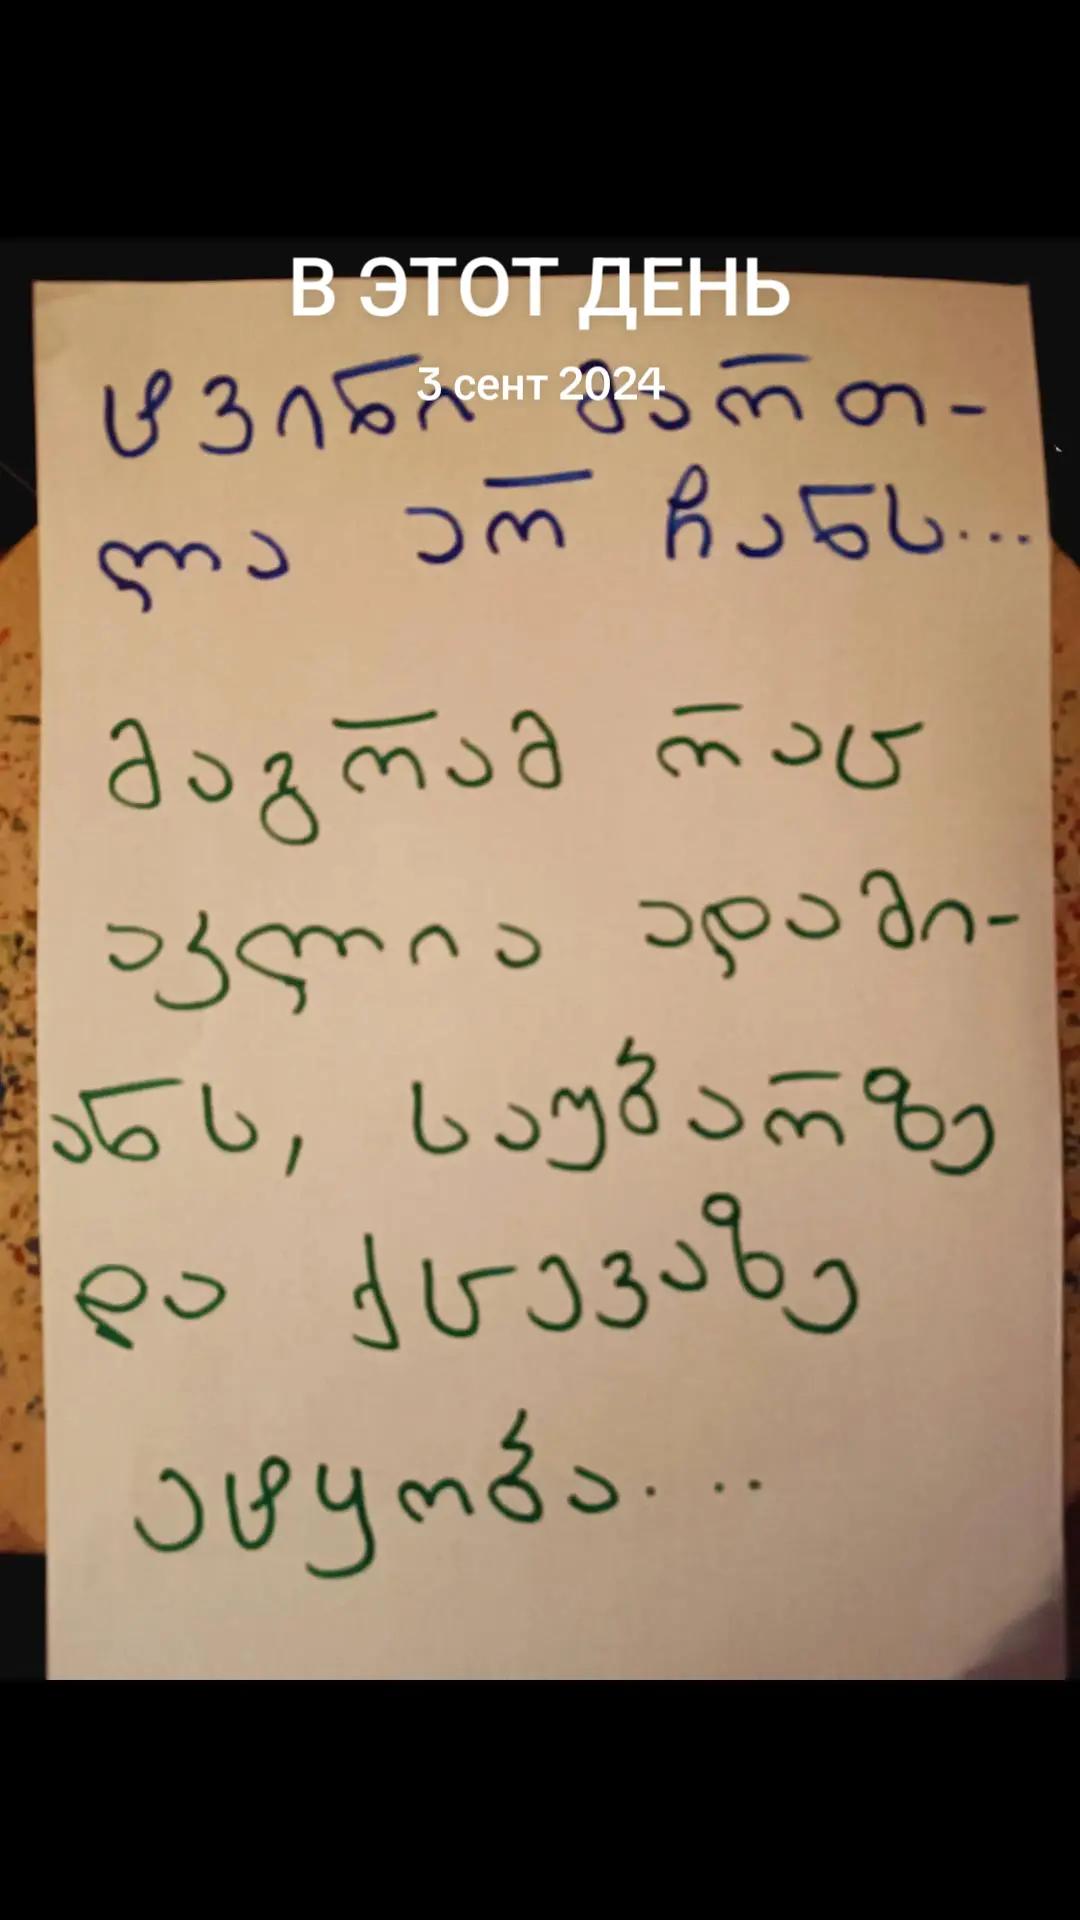 В ЭТОТ ДЕНЬ
3 сент 2024
ტვინი მართ-
ლა არ ჩანს...
მაგრამ რაც
აკლია ადამი-
ანს, საუბარზე
და ქცევაზე
ატყობა...